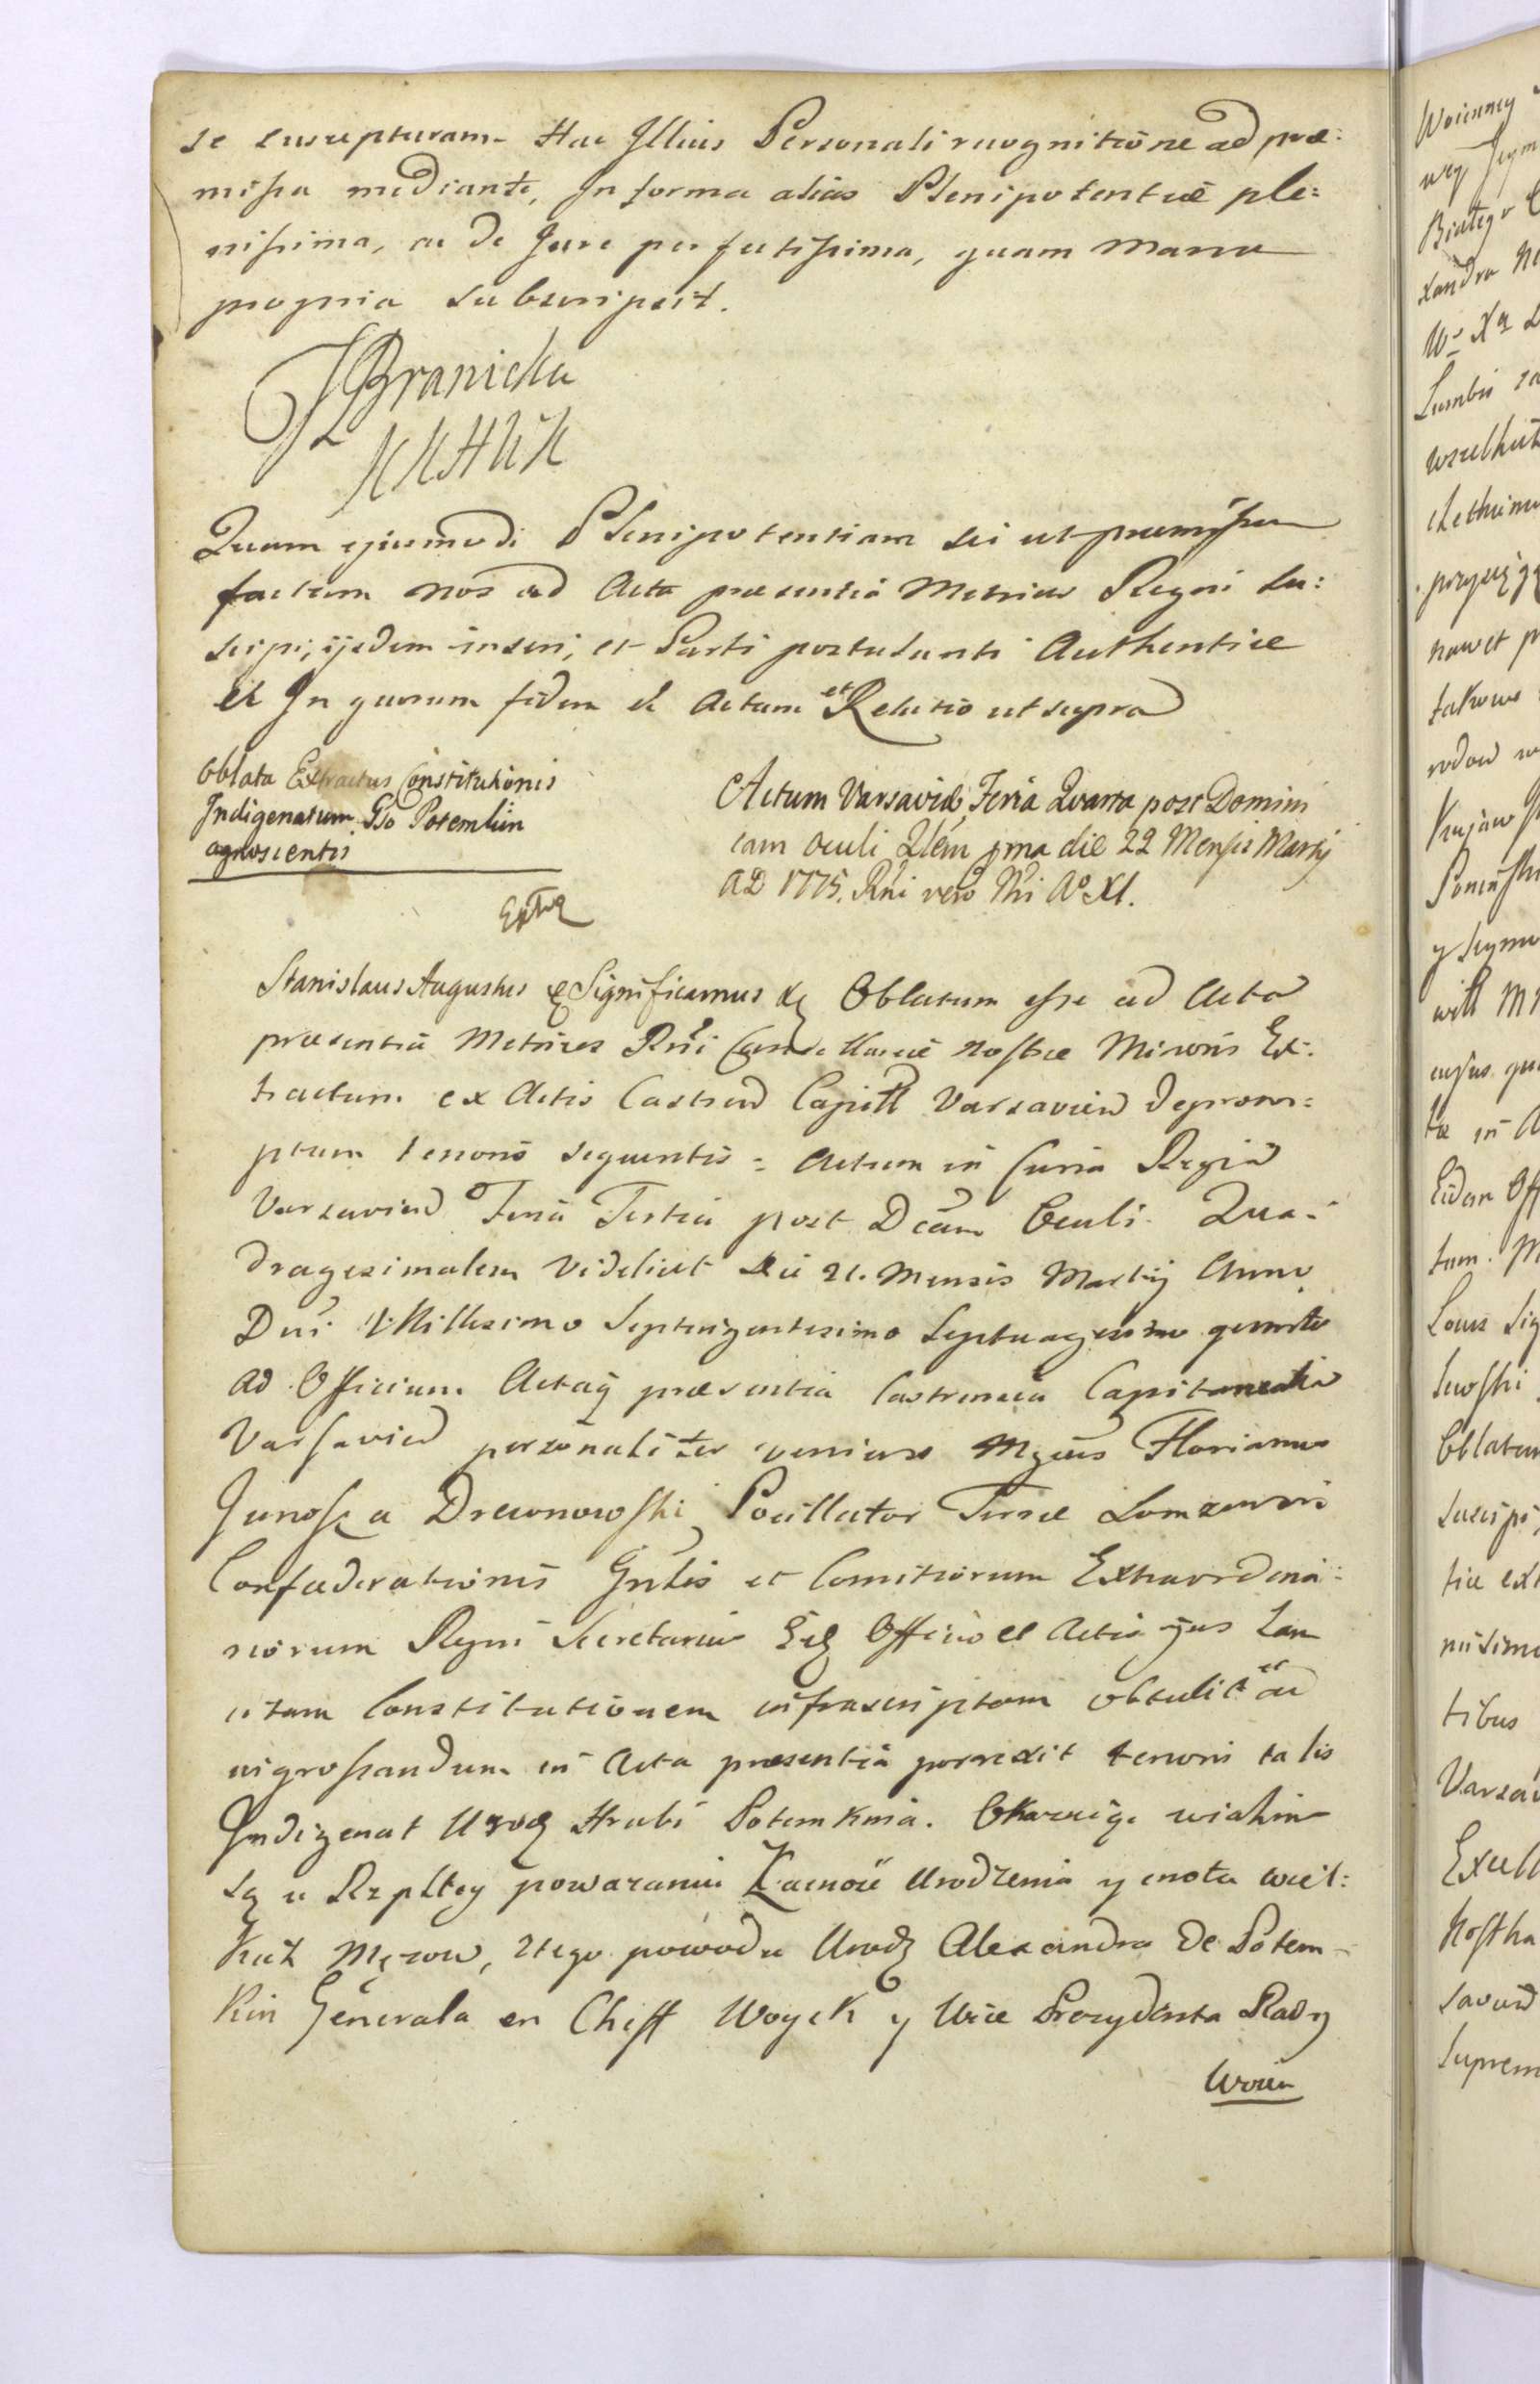 se suscepturam. Hac Illius Personali recognitione ad præ:
missa mediante, In forma alias Plenipotentiæ ple:
nissima, ac de Jure perfectissima, quam manu
propria subscripsit.
Branicka
Quam ejusmodi Plenipotentiam sic ut præmissum
factam nos ad Acta præsentia Metrices Regni su:
scipi, ijsdem inseri, et Parti postulanti Authentice
In quorum fidem Actum et Relatio ut supra
Oblata Extractus Constitutionis
Indigenatum Gso Potemkin
agnoscentis
Extra
Actum Varsaviæ, Feria Quarta post Domini
cam Oculi Qlem pma die 22 Mensis Martij
AD 1775. Rni vero Nri Ao XI.
Stanislaus Augustus & Significamus &c Oblatum esse ad Acta
præsentia Metrices Rni Cancellariæ nostræ Minoris Ex:
tractum ex Actis Castren Capitt Varsavien deprom:
ptum tenoris sequentis = Actum in Curia Regia
Varsavien Feria Tertia post Dcam Oculi Qua:
dragesimalem videlicet die 21. Mensis Martij Anno
Dni Millesimo Septingentesimo Septuagesimo quinto
Ad Officium Actaq præsentia Castrensia Capitanealia
Varsavien personaliter veniens Mgcus Florianus
Junosza Drewnowski Pocillator Terræ Lomzensis
Confæderationis Gnlis et Comitiorum Extraordina:
riorum Regni Secretarius Eid Officio et Actis ejus San
citam Constitutionem infrascriptam obtulit et ad
ingrossandum in Acta præsentia porrexit tenoris talis
Indigenat Urodz Hrabi Potemkina. Okazuiąc wiakim
są u Rzpltey poważaniu Zacność Urodzenia y cnota wiel:
kich Mężow, ztego powodu Urodz Alexandra de Potem-
kin Generala en Cheff Woysk y Vice Prezydenta Rady
Woien